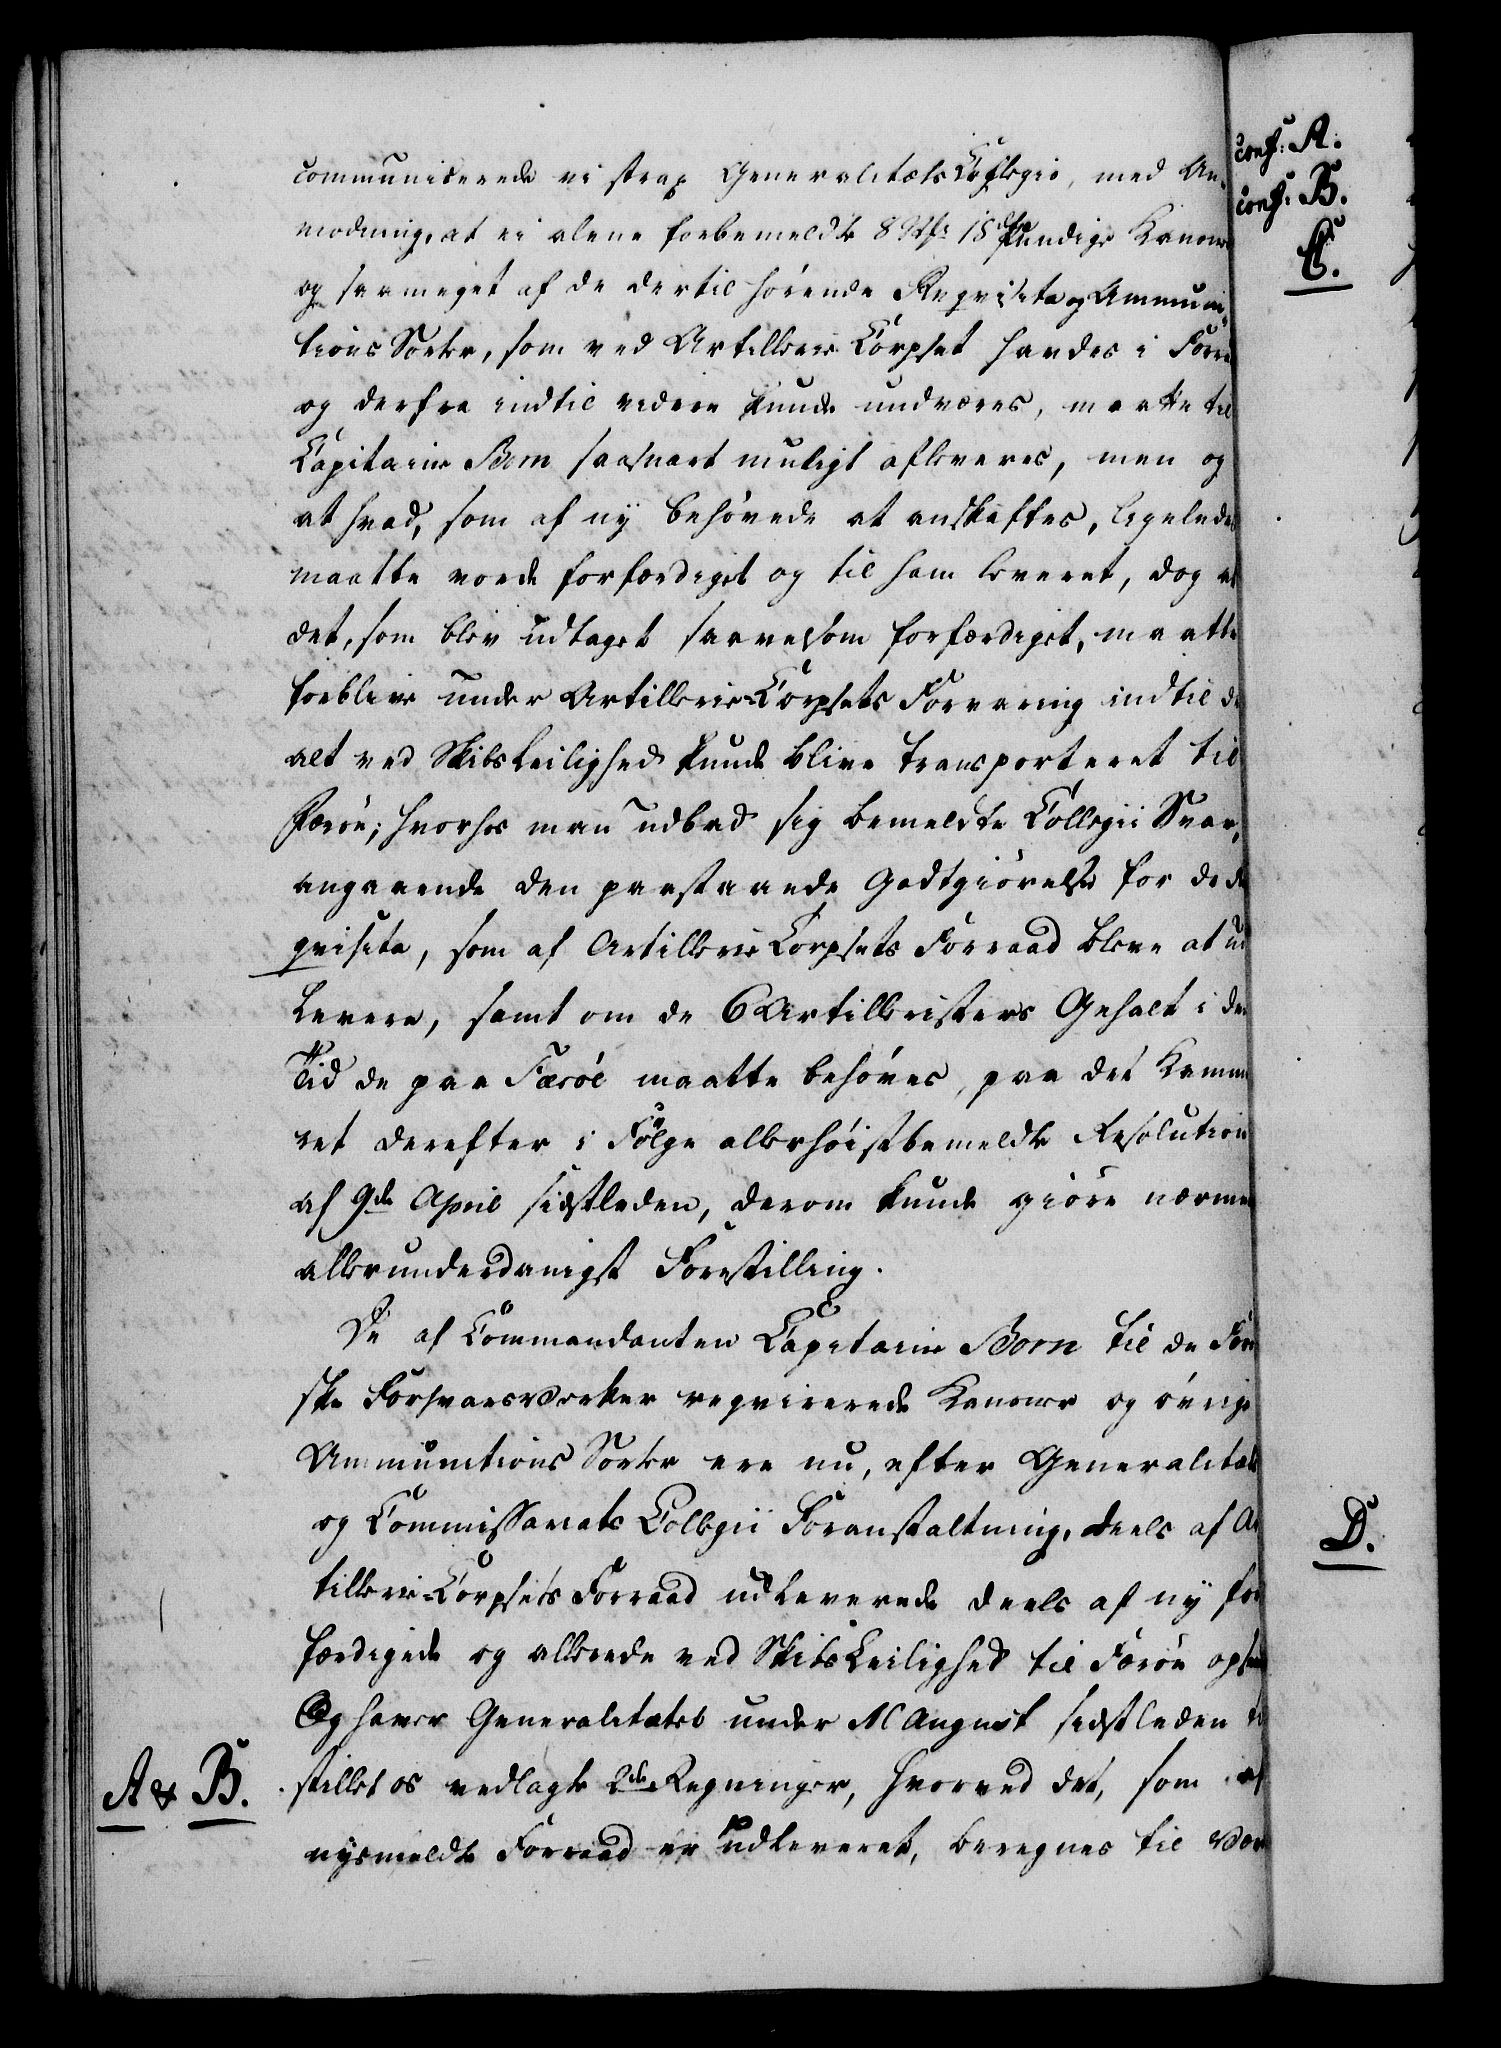 communicerede vi strax Generalitæts Collegie, med An-
modning, at ei alene forbemeldte 8 St: 18 pundige Kanoner
og saameget af de dertil hørende Reqvisita og Ammuni-
tions Sorter, som ved Artillerie Corpset havdes i Forra
og derfra indtil videre kunde undværes, maatte til
Capitaine Born saasnart muligt afleveres, men og
at hvad, som af ny behøvede at anskaffes, ligeledes
maatte vorde forfærdiget og til ham leveret, dog at
det, som blev udtaget saavelsom forfærdiget, maatte
forblive under Artillerie-Corpsets Forvaring indtil de
alt ved Skibsleilighed kunde blive transporteret til
Færøe; hvorhos man udbad sig bemeldte Collegii Svar,
angaaende den paastaaende Godtgiørelse for de Re
qvisita, som af Artillerie Corpsets Forraad bleve at ud
levere, samt om de 6 Artilleristers Gehalt i den
Tid de paa Færøe maatte behøves, paa det Kamme
ret derefter i Følge allerhøistbemeldte Resolution
af 9de April sidstleden, derom kunde giøre nærmere
allerunderdanigst Forestilling.
De af Commandanten Capitaine Born til de Færø
ske Forsvarsværker reqvirerede Kanoner og øvrige
Ammunitions Sorter ere nu, efter Generalitæts
og Commissariats Collegii Foranstaltning, deels af Ar
tillerie-Corpsets Forraad udleverede deels af ny for
færdigede og allerede ved Skibsleilighed til Færøe opsendt
Og haver Generalitetet under 11 August sidstleden til
A & B. stillet os vedlagte 2de Regninger, hvorved det, som af
nysmeldte Forraad er udleveret, beregnes til Vær
conf: A.
conf: B.
C.
D.